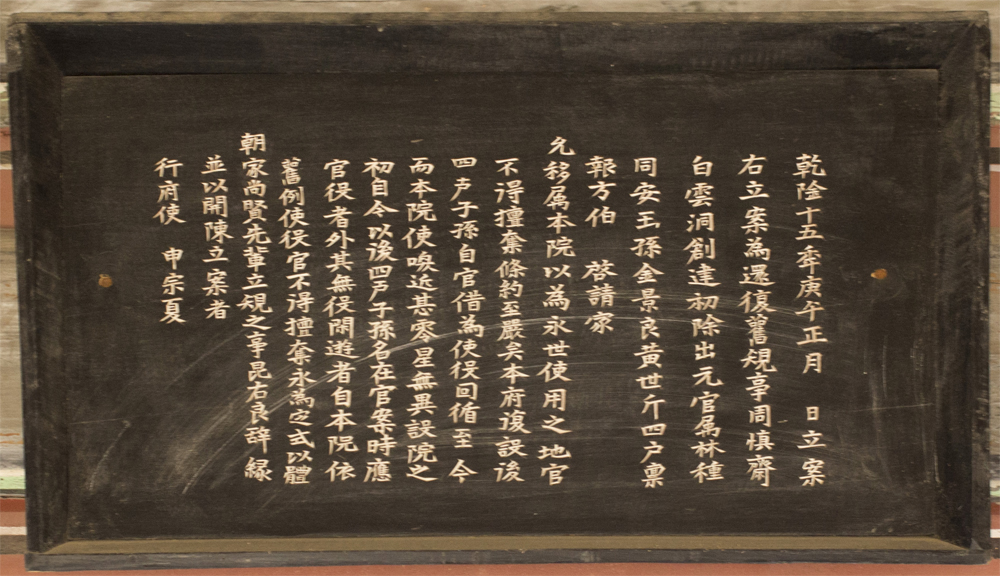 乾隆十五年庚午正月 日立案
右立案為還復舊規事周慎齋
白雲洞創建初除出元官属林種
同安玉孫金景良黄世斤四户禀
報方伯 啓請家
允移属本院以為永世使用之地官
不得擅奪條約至嚴矣本府復設後
四户子孫自官借為使役回循至今
而本院使喚近甚零星無異設院之
初自今以後四户子孫名在官案時應
官役者外其無役閑遊者自本院依
舊例使役官不得擅奪永為定式以體
朝家尚賢先輩立規之事昆右良辞緣
並以開陳立案者
行府使 申宗夏